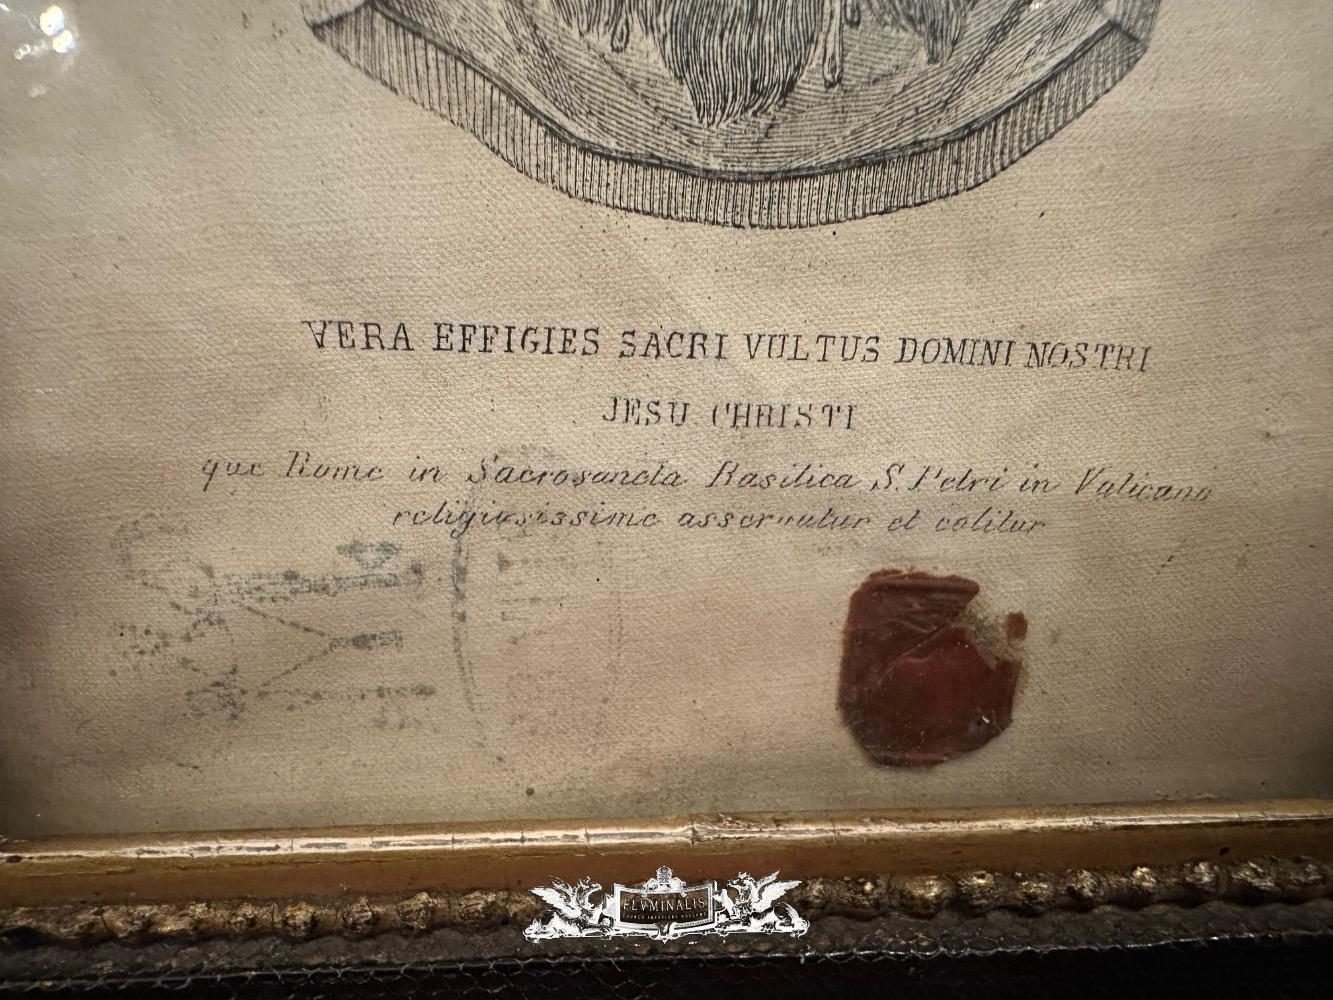 VERA EFFIGIES SACRI VULTUS DOMINI NOSTRI
JESU CHRISTI
quæ Romæ in Sacrosancta Basilica S. Petri in Vaticano
religiosissime asservatur et colitur
FLVMINALIS
CHURCH INTERIORS HOLLAND